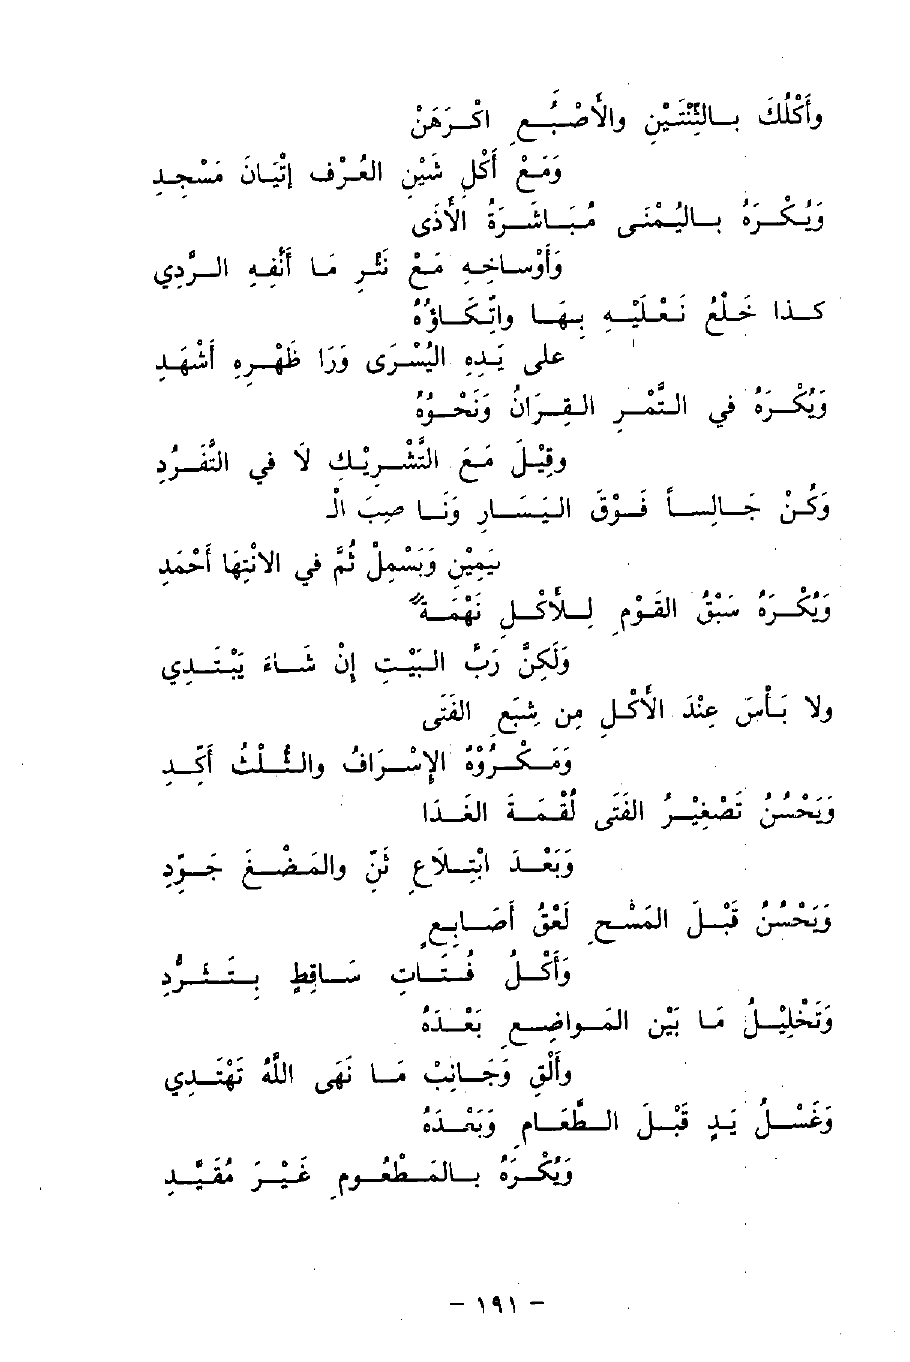 وأَكْلُكَ بِالثِّنْتَيْنِ والأَصْبُعِ اكْرَهَنْ
وَمَعْ أَكْلِ شَيْنِ العُرْفِ إِتْيَانَ مَسْجِدِ
وَيُكْرَهُ بِاليُمْنَى مُبَاشَرَةُ الأَذَى
وَأَوْسَاخِهِ مَعْ نَثْرِ مَا أَنْفِهِ الرَّدِي
كذا خَلْعُ نَعْلَيْهِ بِهَا واتِّكَاؤُهُ
على يَدِهِ اليُسْرَى وَرَا ظَهْرِهِ أَشْهَدِ
وَيُكْرَهُ في التَّمْرِ القِرَانُ وَنَحْوُهُ
وقِيْلَ مَعَ التَّشْرِيْكِ لَا في التَّفَرُدِ
وَكُنْ جَالِساً فَوْقَ اليَسَارِ وَنَاصِبَ الْـ
يَمِيْنِ وَبَسْمِلْ ثُمَّ في الانْتِهَا أَحْمَدِ
وَيُكْرَهُ سَبْقُ القَوْمِ لِلأَكْلِ نَهْمَةً
وَلَكِنَّ رَبَّ البَيْتِ إِنْ شَاءَ يَبْتَدِي
ولا بَأْسَ عِنْدَ الأَكْلِ مِن شِبَعِ الفَتَى
وَمَكْرُوْهُ الإِسْرَافُ والثُّلْثُ أَكِّدِ
وَيَحْسُنُ تَصْغِيْرُ الفَتَى لُقْمَةَ الغَدَا
وَبَعْدَ ابْتِلَاعٍ ثَنِّ والمَضْغَ جَوِّدِ
وَيَحْسُنُ قَبْلَ المَسْحِ لَعْقُ أَصَابِعٍ
وَأَكْلُ فُتَاتٍ سَاقِطٍ بِتَثَرُّدِ
وَتَخْلِيْلُ مَا بَيْنِ المَواضِعِ بَعْدَهُ
وأَلْقِ وَجَانِبْ مَا نَهَى اللَّهُ تَهْتَدِي
وَغَسْلُ يَدٍ قَبْلَ الطَّعَامِ وَبَعْدَهُ
وَيُكْرَهُ بِالمَطْعُومِ غَيْرَ مُقَيَّدِ
- ١٩١ -